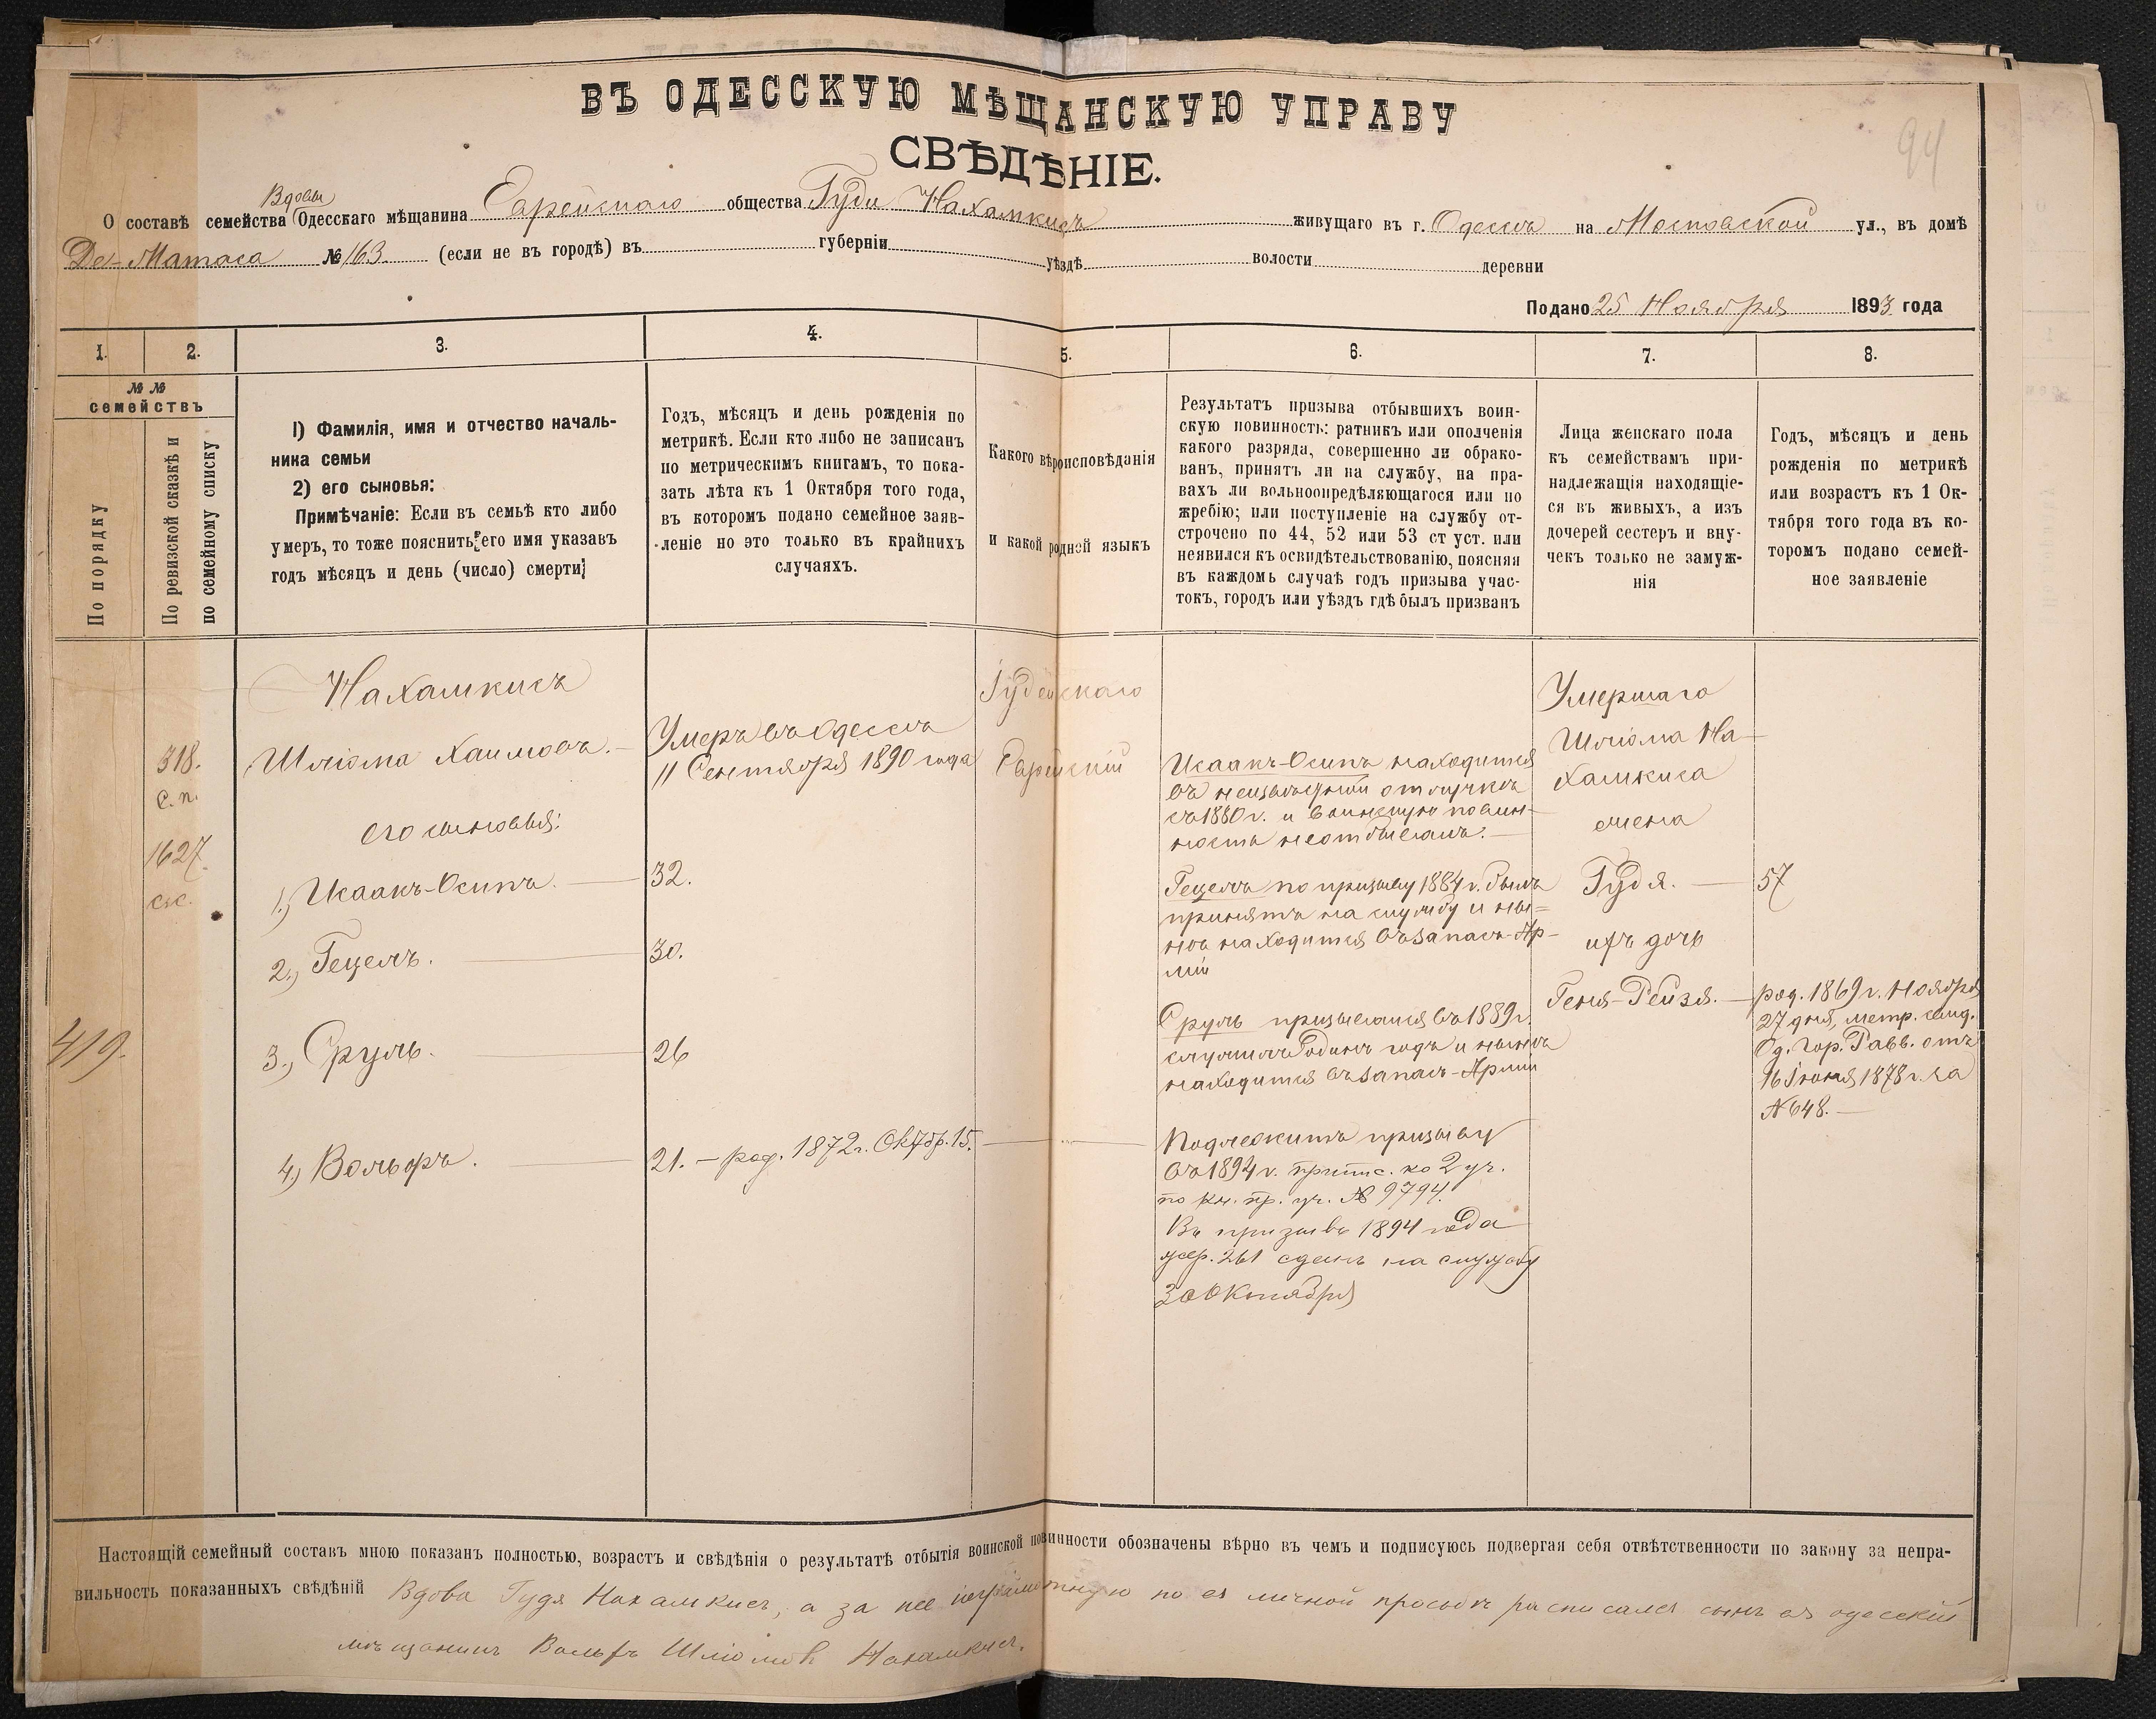 94
ВЪ ОДЕССКУЮ МѢЩАНСКУЮ УПРАВУ
СВѢДѢНІЕ.
Вдовы
О составѣ семейства Одесскаго мѣщанина Еврейскаго общества Гуди Нахамкисъ живущаго въ г. Одессѣ на Московской ул., въ домѣ
Де-Матаса № 163. (если не въ городѣ) въ губерніи уѣздѣ волости деревни
Подано 25 Ноября 1893 года
1.
2.
3.
4.
5.
6.
7.
8.
№ №
семействъ
По порядку
По ревизской сказкѣ и
по семейному списку
1) Фамилія, имя и отчество началь-
ника семьи
2) его сыновья:
Примѣчаніе: Если въ семьѣ кто либо
умеръ, то тоже пояснить его имя указавъ
годъ мѣсяцъ и день (число) смерти;
Годъ, мѣсяцъ и день рожденія по
метрикѣ. Если кто либо не записанъ
по метрическимъ книгамъ, то пока-
зать лѣта къ 1 Октября того года,
въ которомъ подано семейное заяв-
леніе но это только въ крайнихъ
случаяхъ.
Какого вѣроисповѣданія
и какой родной языкъ
Результатъ призыва отбывшихъ воин-
скую повинность: ратникъ или ополченія
какого разряда, совершенно ли обрако-
ванъ, принятъ ли на службу, на пра-
вахъ ли вольноопредѣляющагося или по
жребію; или поступленіе на службу от-
строчено по 44, 52 или 53 ст уст. или
неявился къ освидѣтельствованію, поясняя
въ каждомъ случаѣ годъ призыва учас-
токъ, городъ или уѣздъ гдѣ былъ призванъ
Лица женскаго пола
къ семействамъ при-
надлежащія находящіе-
ся въ живыхъ, а изъ
дочерей сестеръ и вну-
чекъ только не замуж-
нія
Годъ, мѣсяцъ и день
рожденія по метрикѣ
или возрастъ къ 1 Ок-
тября того года въ ко-
торомъ подано семей-
ное заявленіе
419.
318.
с. п.
1627
ск.
Нахамкисъ
Шліома Хаимовъ.
его сыновья:
1.) Исаакъ-Осипъ.
2.) Гецель.
3.) Сруль.
4.) Вольфъ.
Умеръ въ Одессѣ
11 Сентября 1890 года
32.
30.
26
21. – род. 1872 г. Октбр. 15.
Іудейскаго
Еврейскій
Исаакъ-Осипъ находится
въ неизвѣстной отлучкѣ
съ 1880 г. и воинскую повин-
ность неотбывалъ.
Гецель по призыву 1884 г. былъ
принятъ на службу и ны-
нѣ находится въ запасѣ Ар-
міи
Сруль призывался въ 1889 г.
служилъ одинъ годъ и нынѣ
находится въ запасѣ Арміи
Подлежитъ призыву
въ 1894 г. припис. ко 2 уч.
по кн. пр. уч. № 9794.
Въ призывъ 1894 года
жер. 261 сданъ на службу
30 Октября
Умершаго
Шліома На-
хамкиса
жена
Гудя.
ихъ дочь
Геня-Рейзя.
57
род. 1869 г. Ноября
27 дня, метр. свид.
Од. Гор. Равв. отъ
16 Іюня 1878 г. за
№ 648.
Настоящій семейный составъ мною показанъ полностью, возрастъ и свѣдѣнія о результатѣ отбытія воинской повинности обозначены вѣрно въ чемъ и подписуюсь подвергая себя отвѣтственности по закону за непра-
вильность показанныхъ свѣдѣній Вдова Гудя Нахамкисъ, а за нее неграмотную по ея личной просьбѣ расписался сынъ ея одесскій
мѣщанинъ Вольфъ Шліомов Нахамкисъ.